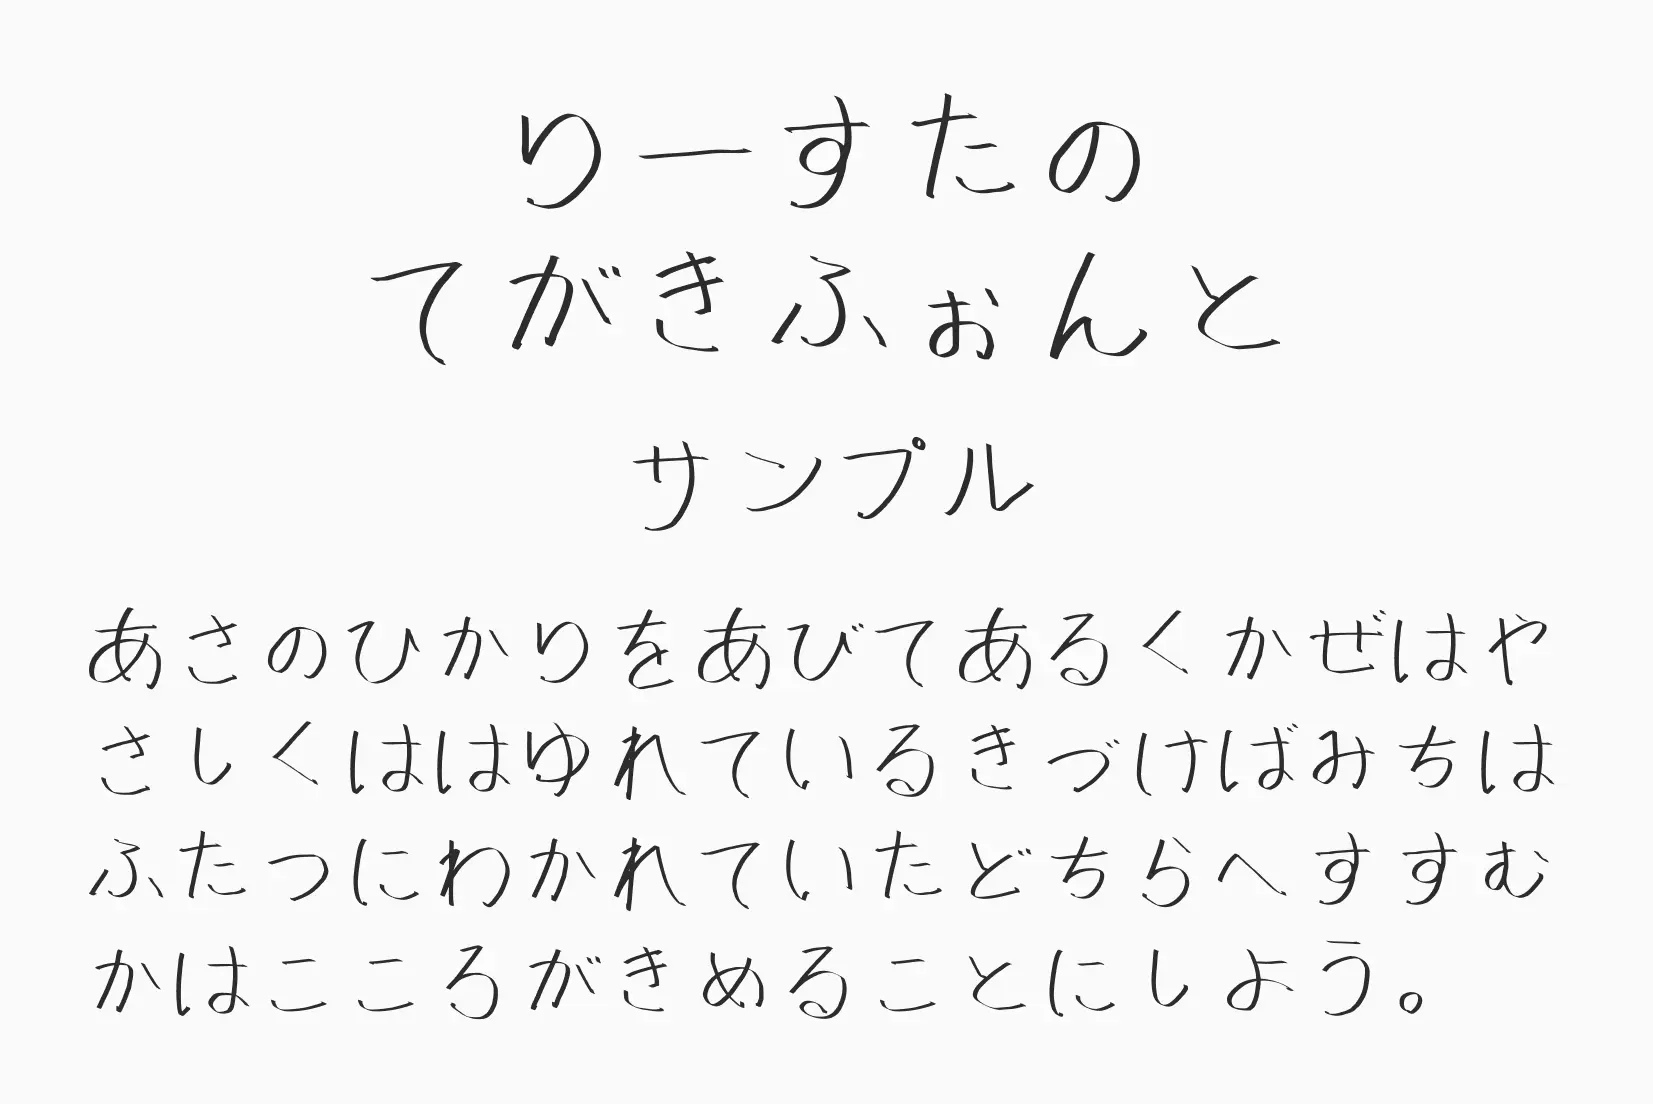 りーすたの
てがきふぉんと
サンプル
あさのひかりをあびてあるくかぜはや
さしくははゆれているきづけばみちは
ふたつにわかれていたどちらへすすむ
かはこころがきめることにしよう。